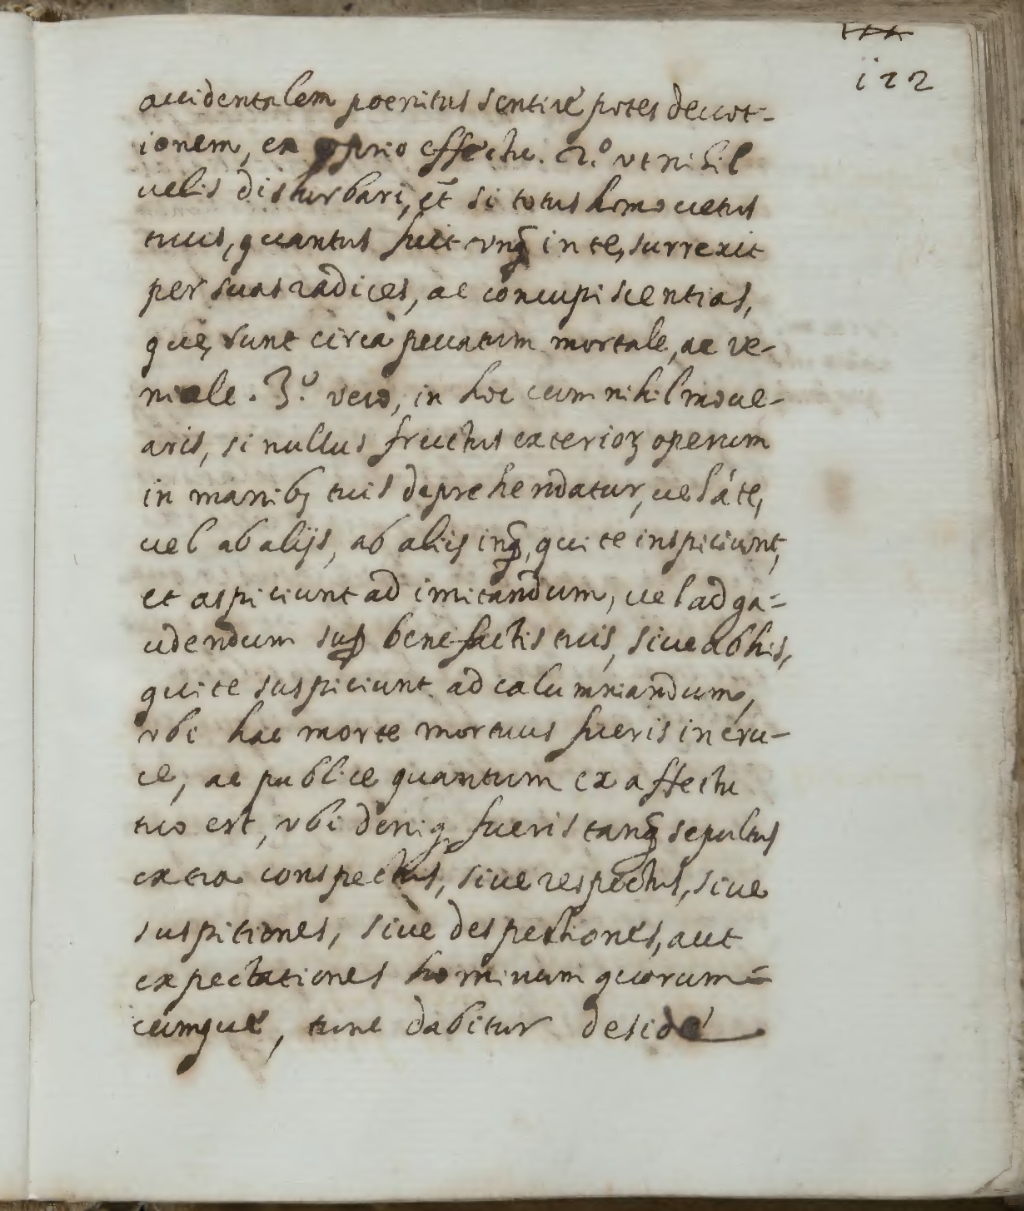 122
accidentalem poenitus sentire potes deuot-
ionem, ex proprio effectu. 2.º vt nihil
uelis disturbari, et si totus homo uetus
tuus, quantus fuit vnq̃ in te, surrexit
per suas radices, ac concupiscentias,
quę sunt circa peccatum mortale, ac ve-
niale. 3.º vero, in hoc cum nihil moue-
aris, si nullus fructus exterioꝝ operum
in manibꝫ tuis deprehendatur, uel á te,
uel ab alijs, ab aliis inq̃, qui te inspiciunt,
et aspiciunt ad imitandum, uel ad ga-
udendum sup benefactis tuis, siue ab his,
qui te suspiciunt ad calumniandum,
vbi hac morte mortuus fueris in cru-
ce, ac publice quantum ex affectu
tuo est, vbi deniq fueris tanq̃ sepultus
extra conspectus, siue respectus, siue
suspitiones, siue despectiones, aut
expectationes hominum quorum-
cumque, tunc dabitur